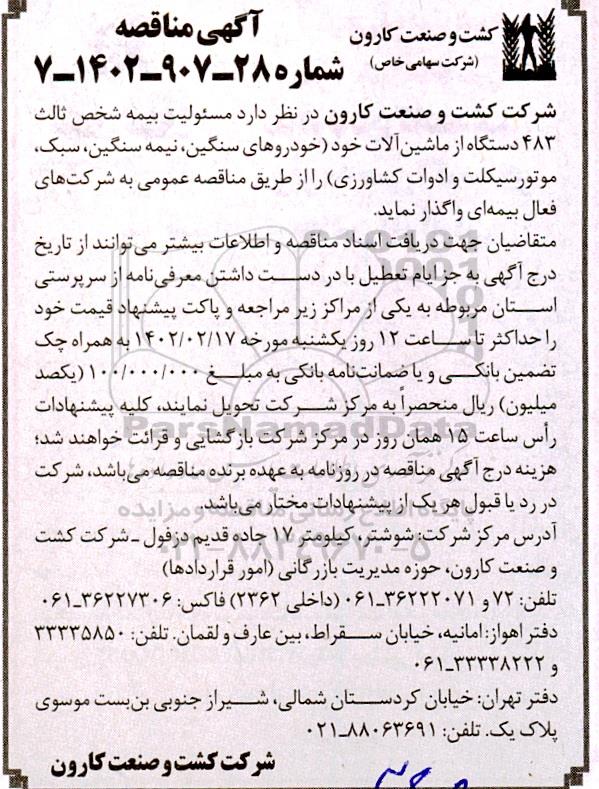 کشت و صنعت کارون
(شرکت سهامی خاص)
آگهی مناقصه
شماره ۲۸ــ۹۰۷ــ۱۴۰۲ــ۷
شرکت کشت و صنعت کارون در نظر دارد مسئولیت بیمه شخص ثالث
۴۸۳ دستگاه از ماشین‌آلات خود (خودروهای سنگین، نیمه سنگین، سبک،
موتورسیکلت و ادوات کشاورزی) را از طریق مناقصه عمومی به شرکت‌های
فعال بیمه‌ای واگذار نماید.
متقاضیان جهت دریافت اسناد مناقصه و اطلاعات بیشتر می‌توانند از تاریخ
درج آگهی به جز ایام تعطیل با در دست داشتن معرفی‌نامه از سرپرستی
استان مربوطه به یکی از مراکز زیر مراجعه و پاکت پیشنهاد قیمت خود
را حداکثر تا ساعت ۱۲ روز یکشنبه مورخه ۱۴۰۲/۰۲/۱۷ به همراه چک
تضمین بانکی و یا ضمانت‌نامه بانکی به مبلغ ۱۰۰/۰۰۰/۰۰۰ (یکصد
میلیون) ریال منحصراً به مرکز شرکت تحویل نمایند، کلیه پیشنهادات
رأس ساعت ۱۵ همان روز در مرکز شرکت بازگشایی و قرائت خواهند شد؛
هزینه درج آگهی مناقصه در روزنامه به عهده برنده مناقصه می‌باشد، شرکت
در رد یا قبول هر یک از پیشنهادات مختار می‌باشد.
آدرس مرکز شرکت: شوشتر، کیلومتر ۱۷ جاده قدیم دزفول ـ شرکت کشت
و صنعت کارون، حوزه مدیریت بازرگانی (امور قراردادها)
تلفن: ۷۲ و ۳۶۲۲۲۰۷۱ــ۰۶۱ (داخلی ۲۳۶۲) فاکس: ۳۶۲۲۷۳۰۶ــ۰۶۱
دفتر اهواز: امانیه، خیابان سقراط، بین عارف و لقمان. تلفن: ۳۳۳۳۵۸۵۰
و ۳۳۳۳۸۲۲۲ــ۰۶۱
دفتر تهران: خیابان کردستان شمالی، شیراز جنوبی بن‌بست موسوی
پلاک یک. تلفن: ۸۸۰۶۳۶۹۱ــ۰۲۱
شرکت کشت و صنعت کارون
ParsNamadData
۰۲۱-۸۸۳۴۹۶۷۰-۵